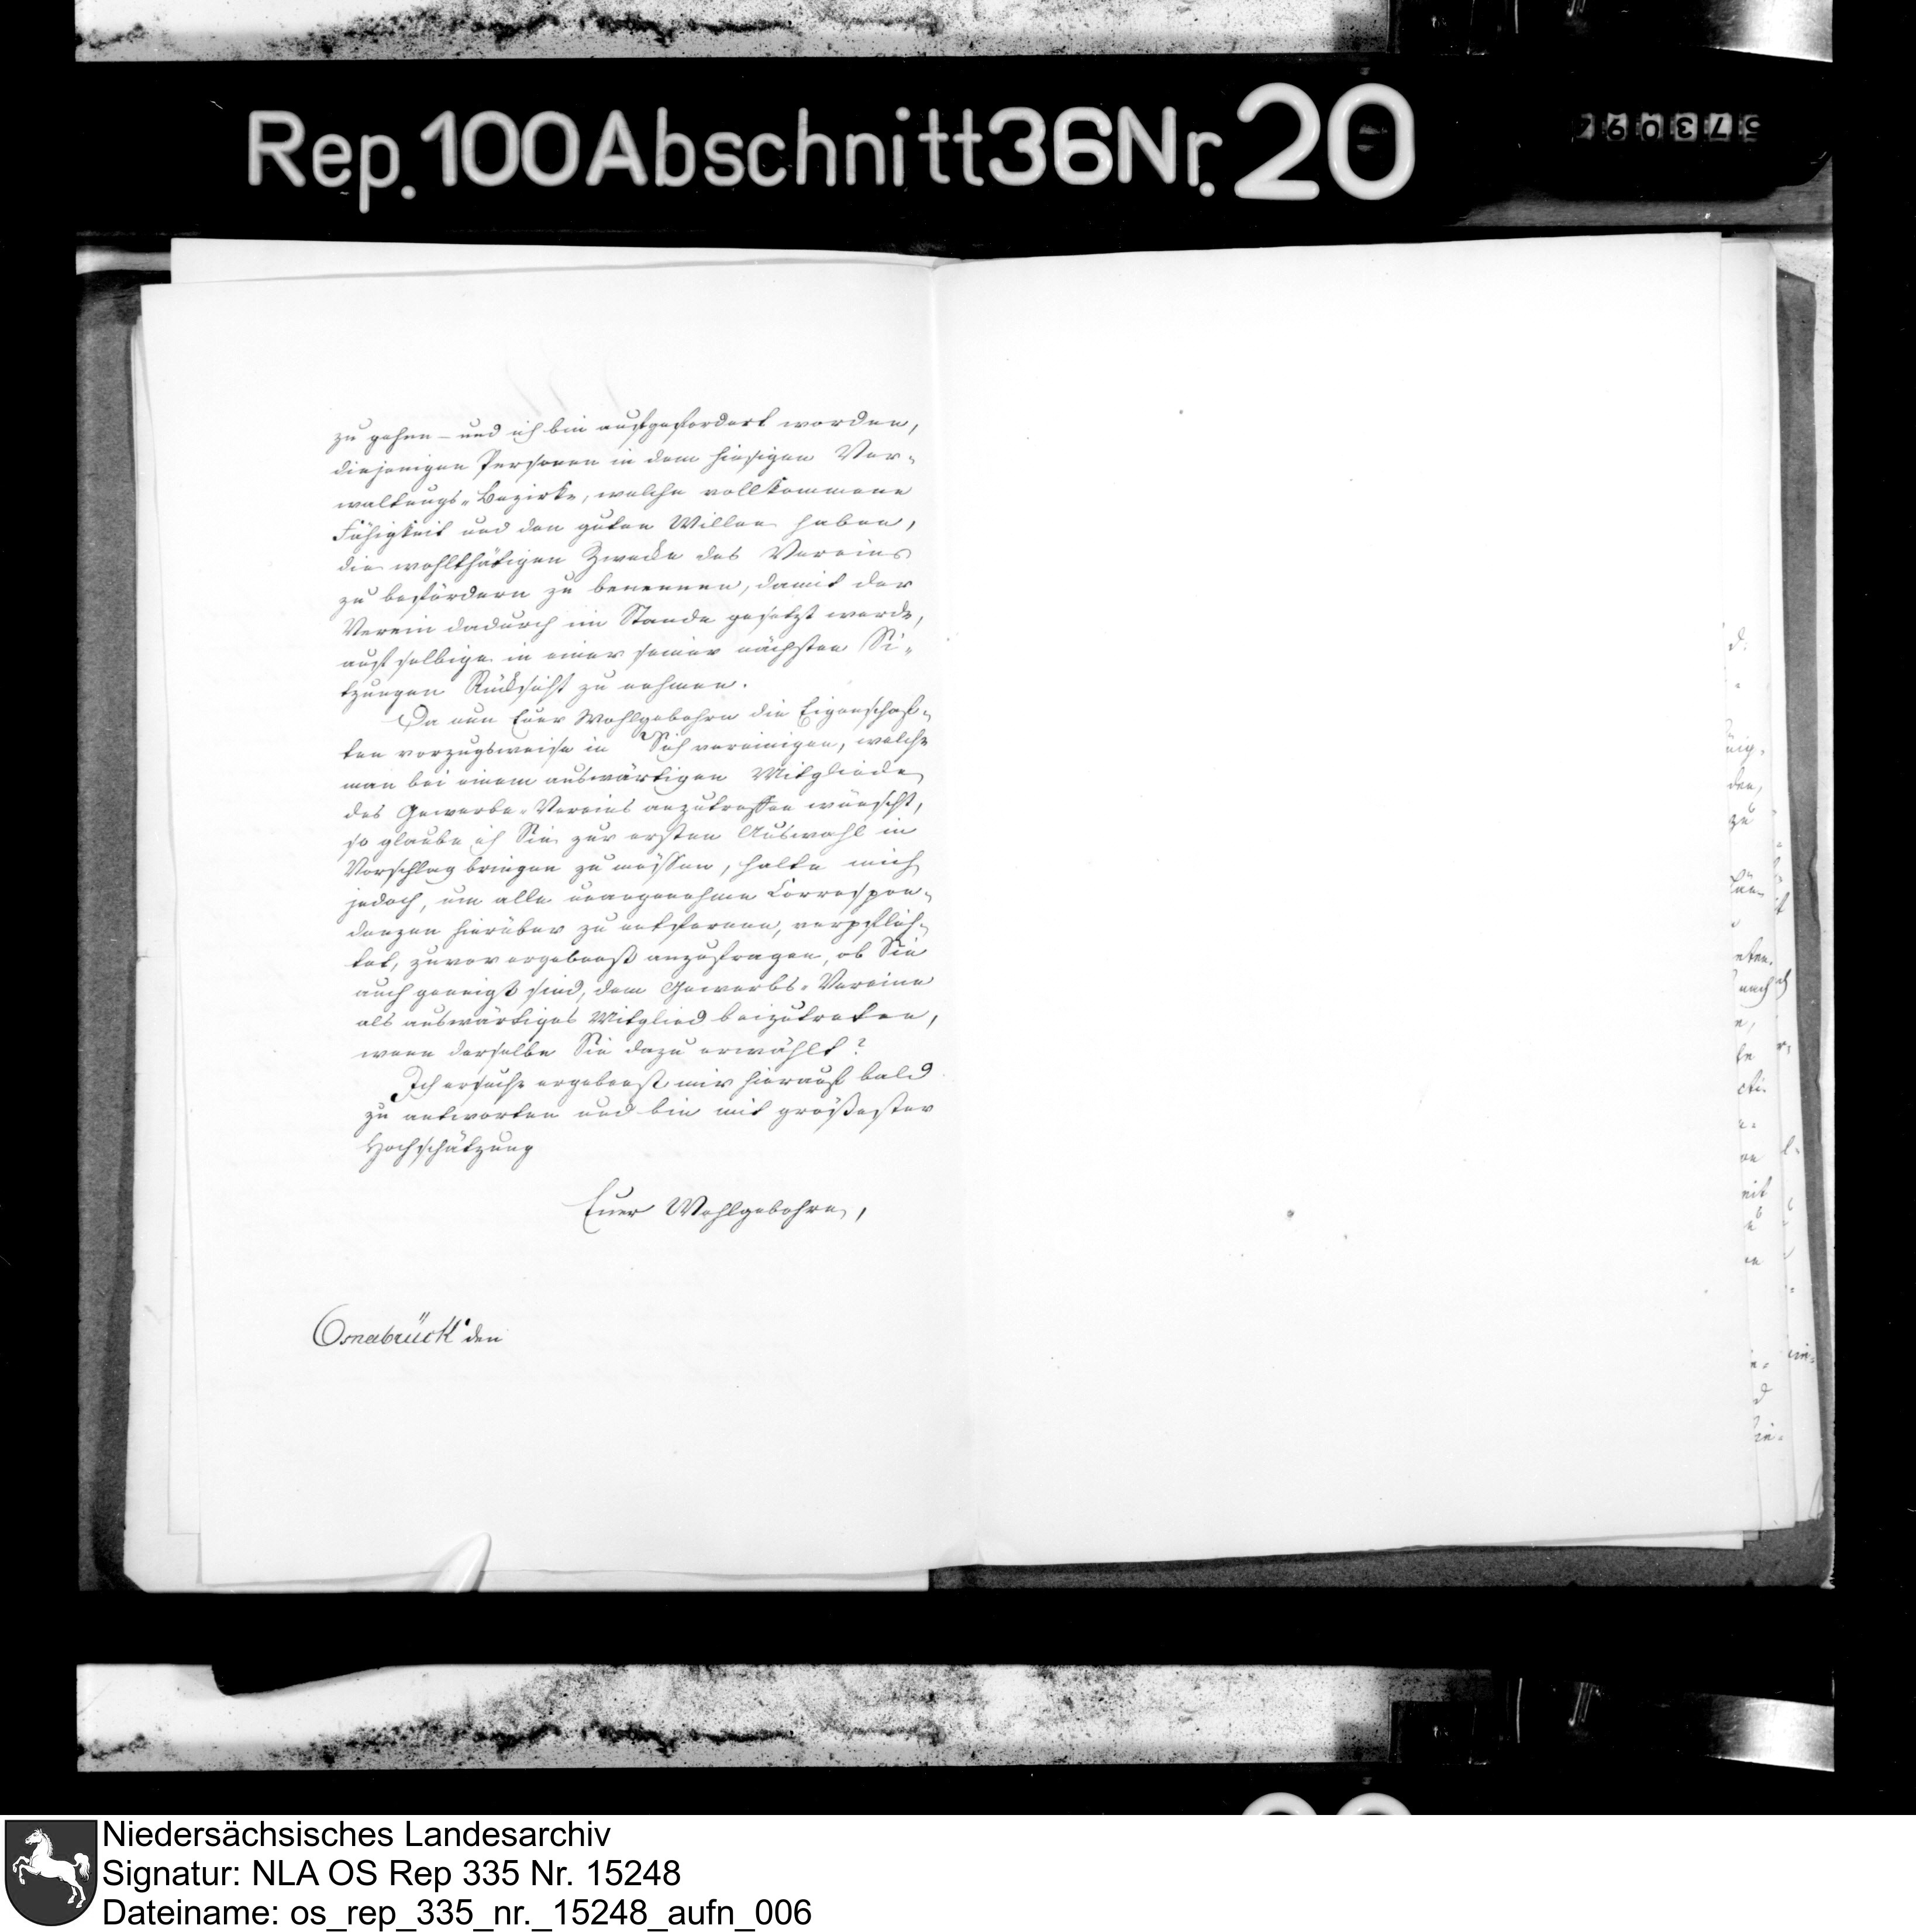 Rep. 100 Abschnitt 36 Nr. 20
zu gehen – und ich bin aufgefordert worden,
diejenigen Personen in dem hiesigen Ver-
waltungs-Bezirke, welche vollkommene
Fähigkeit und den guten Willen haben,
die wohlthätigen Zwecke des Vereins
zu befördern zu benennen, damit der
Verein dadurch im Stande gesetzt werde,
auf selbige in einer seiner nächsten Si-
tzungen Rücksicht zu nehmen.
Da nun Euer Wohlgebohrn die Eigenschaf-
ten vorzugsweise in Sich vereinigen, welche
man bei einem auswärtigen Mitgliede
des Gewerbe-Vereins anzutreffen wünscht,
so glaube ich Sie zur ersten Auswahl in
Vorschlag bringen zu müssen, halte mich
jedoch, um alle unangenehme Correspon-
denzen hierüber zu entfernen, verpflich-
tet, zuvor ergebenst anzufragen, ob Sie
auch geneigt sind, dem Gewerbs-Vereine
als auswärtiges Mitglied beizutreten,
wenn derselbe Sie dazu erwählt?
Ich ersuche ergebenst mir hierauf bald
zu antworten und bin mit größester
Hochschätzung
Euer Wohlgebohrn,
Osnabrück den
Niedersächsisches Landesarchiv
Signatur: NLA OS Rep 335 Nr. 15248
Dateiname: os_rep_335_nr._15248_aufn_006